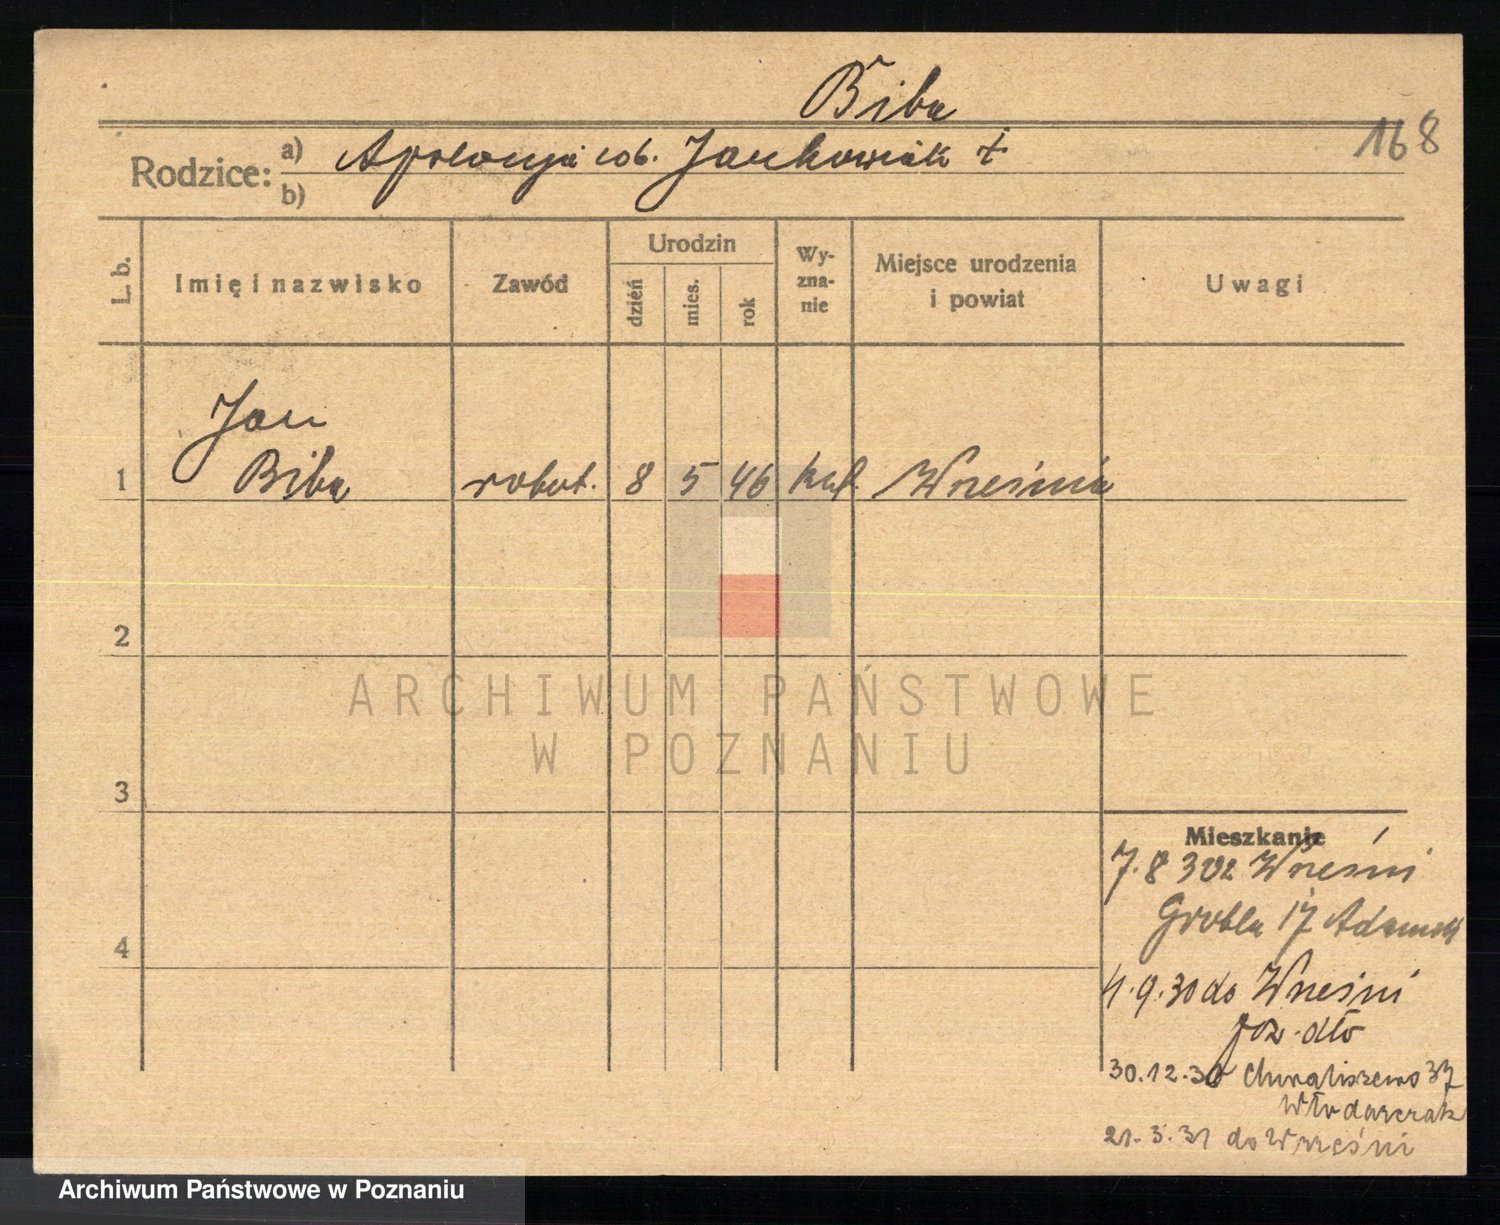 Biba
168
Rodzice: a) Apolonja rob. Jankowiak +
b)
L. b.
Imię i nazwisko
Zawód
Urodzin
dzień
mies.
rok
Wy-
zna-
nie
Miejsce urodzenia
i powiat
Uwagi
Jan
1 Biba robot. 8 5 46 kat. Września
2
ARCHIWUM PAŃSTWOWE
W POZNANIU
3
Mieszkanie
7.8 30 z Wrześni
Grobla 17 Adamsk
4
4.9.30 do Wrześni
30.12.30 Chwaliszewo 37
Włodarczak
21.3.31 do Wrześni
Archiwum Państwowe w Poznaniu